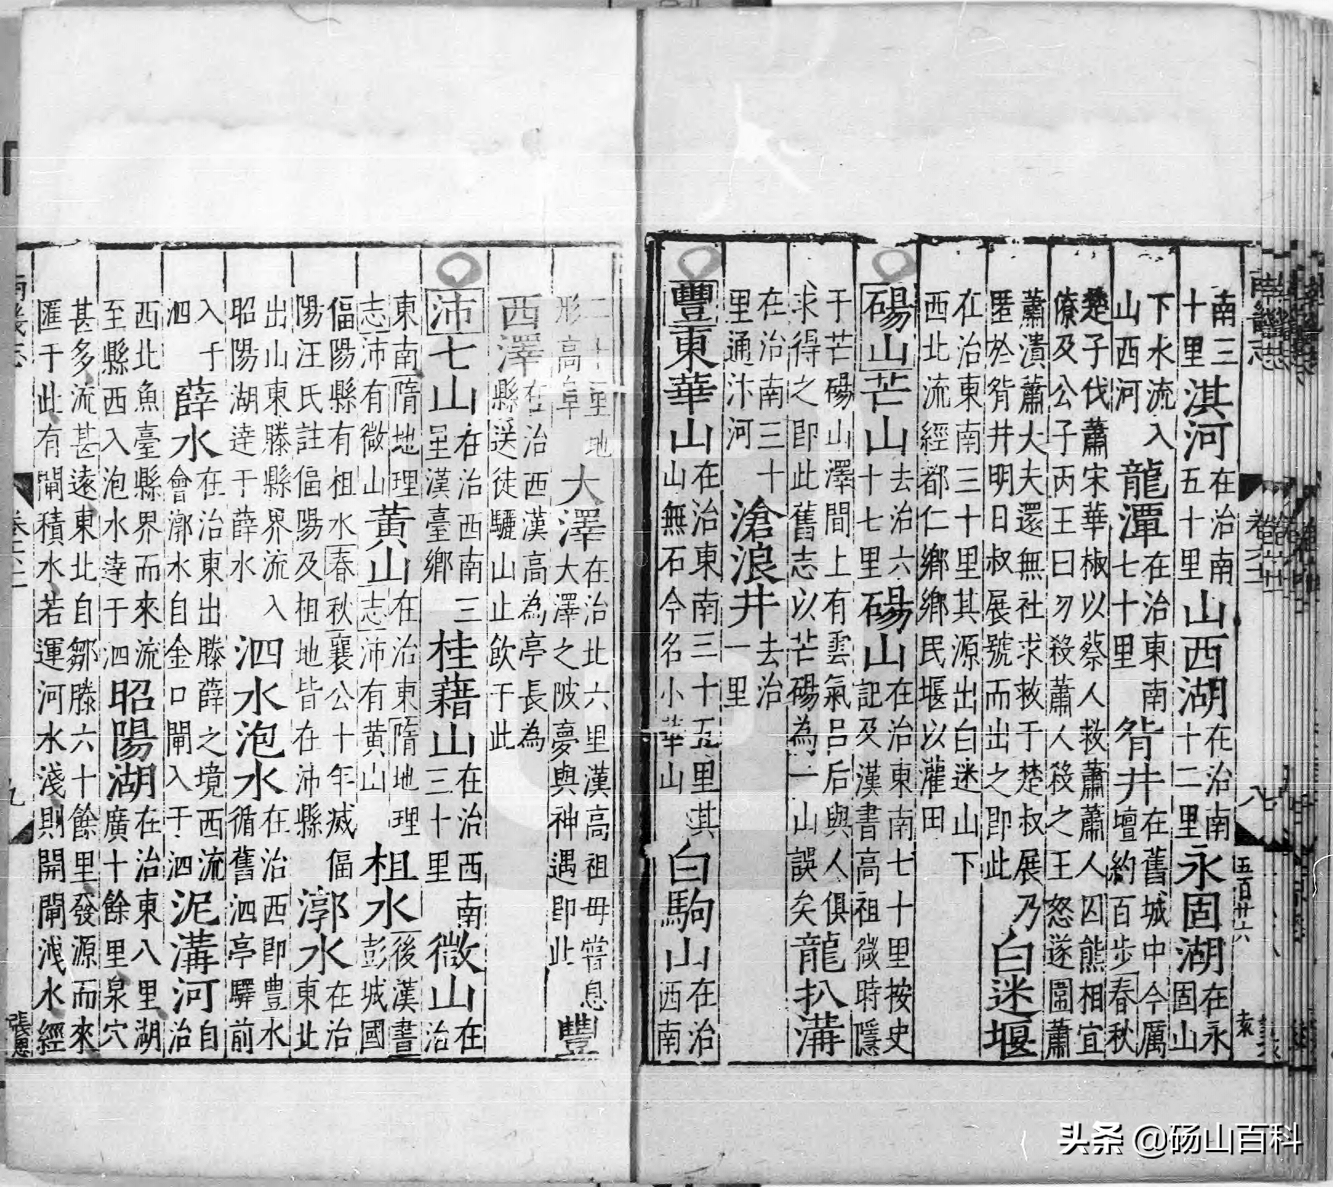 南畿志
八
五百廿六
南三十里淇河在治南五十里山西湖在治南十二里永固湖在永固山
下水流入山西河龍潭在治東南七十里眢井在舊城中今厲壇約百步春秋
楚子伐蕭宋華椒以蔡人救蕭蕭人囚熊相宜
僚及公子丙王曰勿殺蕭人殺之王怒遂圍蕭
蕭潰蕭大夫還無社求救于楚叔展乃
匿於眢井明日叔展號而出之即此白迷堰
在治東南三十里其源出白迷山下
西北流經都仁鄉鄉民堰以灌田
碭山芒山去治六十七里碭山在治東南七十里按史記及漢書高祖微時隱
于芒碭山澤間上有雲氣呂后與人俱
求得之即此舊志以芒碭為一山誤矣龍扒溝
在治南三十里通汴河滄浪井去治一里
豐東華山在治東南三十五里其山無石今名小華山白駒山在治西南
二十里地形高阜大澤在治北六里漢高祖母嘗息大澤之陂夢與神遇即此豐
西澤在治西漢高為亭長為縣送徒驪山止飲于此
沛七山在治西南三里漢臺鄉桂藉山在治西南三十里微山在治
東南隋地理志沛有微山黃山在治東隋地理志沛有黃山柤水後漢書彭城國
偪陽縣有柤水春秋襄公十年滅偪
陽汪氏註偪陽及柤地皆在沛縣漷水在治東北
出山東滕縣界流入昭陽湖逹于薛水泗水泡水在治西即豊水循舊泗亭驛前
入于泗薛水在治東出滕薛之境西流會漷水自金口閘入于泗泥溝河自治
西北魚臺縣界而來流至縣西入泡水逹于泗昭陽湖在治東八里湖廣十餘里泉穴
甚多流甚遠東北自鄒滕六十餘里發源而來
匯于此有閘積水若運河水淺則開閘洩水經
九
头条 @砀山百科